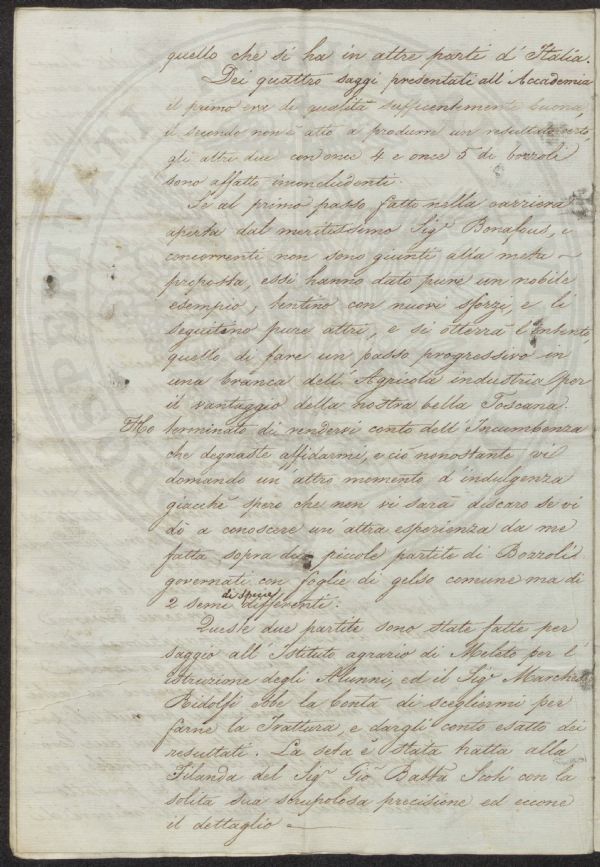 quello che si ha in altre parti d'Italia.
Dei quattro saggi presentati all'Accademia
il primo era di qualità sufficientemente buona,
il secondo non è atto a produrre un resultato certo,
gli altri due con once 4 e once 5 di bozzoli
sono affatto inconcludenti.
Se al primo passo fatto nella carriera
aperta dal meritissimo Sigr Bonafous, i
concorrenti non sono giunti alla meta
proposta, essi hanno dato pure un nobile
esempio, tentino con nuovi sforzi, e li
seguitino pure altri, e si otterrà l'intento,
quello di fare un passo progressivo in
una branca dell'Agricola industria per
il vantaggio della nostra bella Toscana.
Ho terminato di rendervi conto dell'Incumbenza
che degnaste affidarmi, e ciò nonostante vi
domando un'altro momento d'indulgenza
giacchè spero che non vi sarà discaro se vi
dò a conoscere un'altra esperienza da me
fatta sopra due piccole partite di Bozzoli
governati con foglie di gelso comune ma di
di specie
2 seme differenti.
Queste due partite sono state fatte per
saggio all'Istituto agrario di Meleto per l'
istruzione degli Alunni, ed il Sigr Marchese
Ridolfi ebbe la bontà di scegliermi per
farne la Trattura, e dargli conto esatto dei
resultati. La seta è stata tratta alla
Filanda del Sigr Gio Batta Scoti con la
solita sua scrupolosa precisione ed eccone
il dettaglio